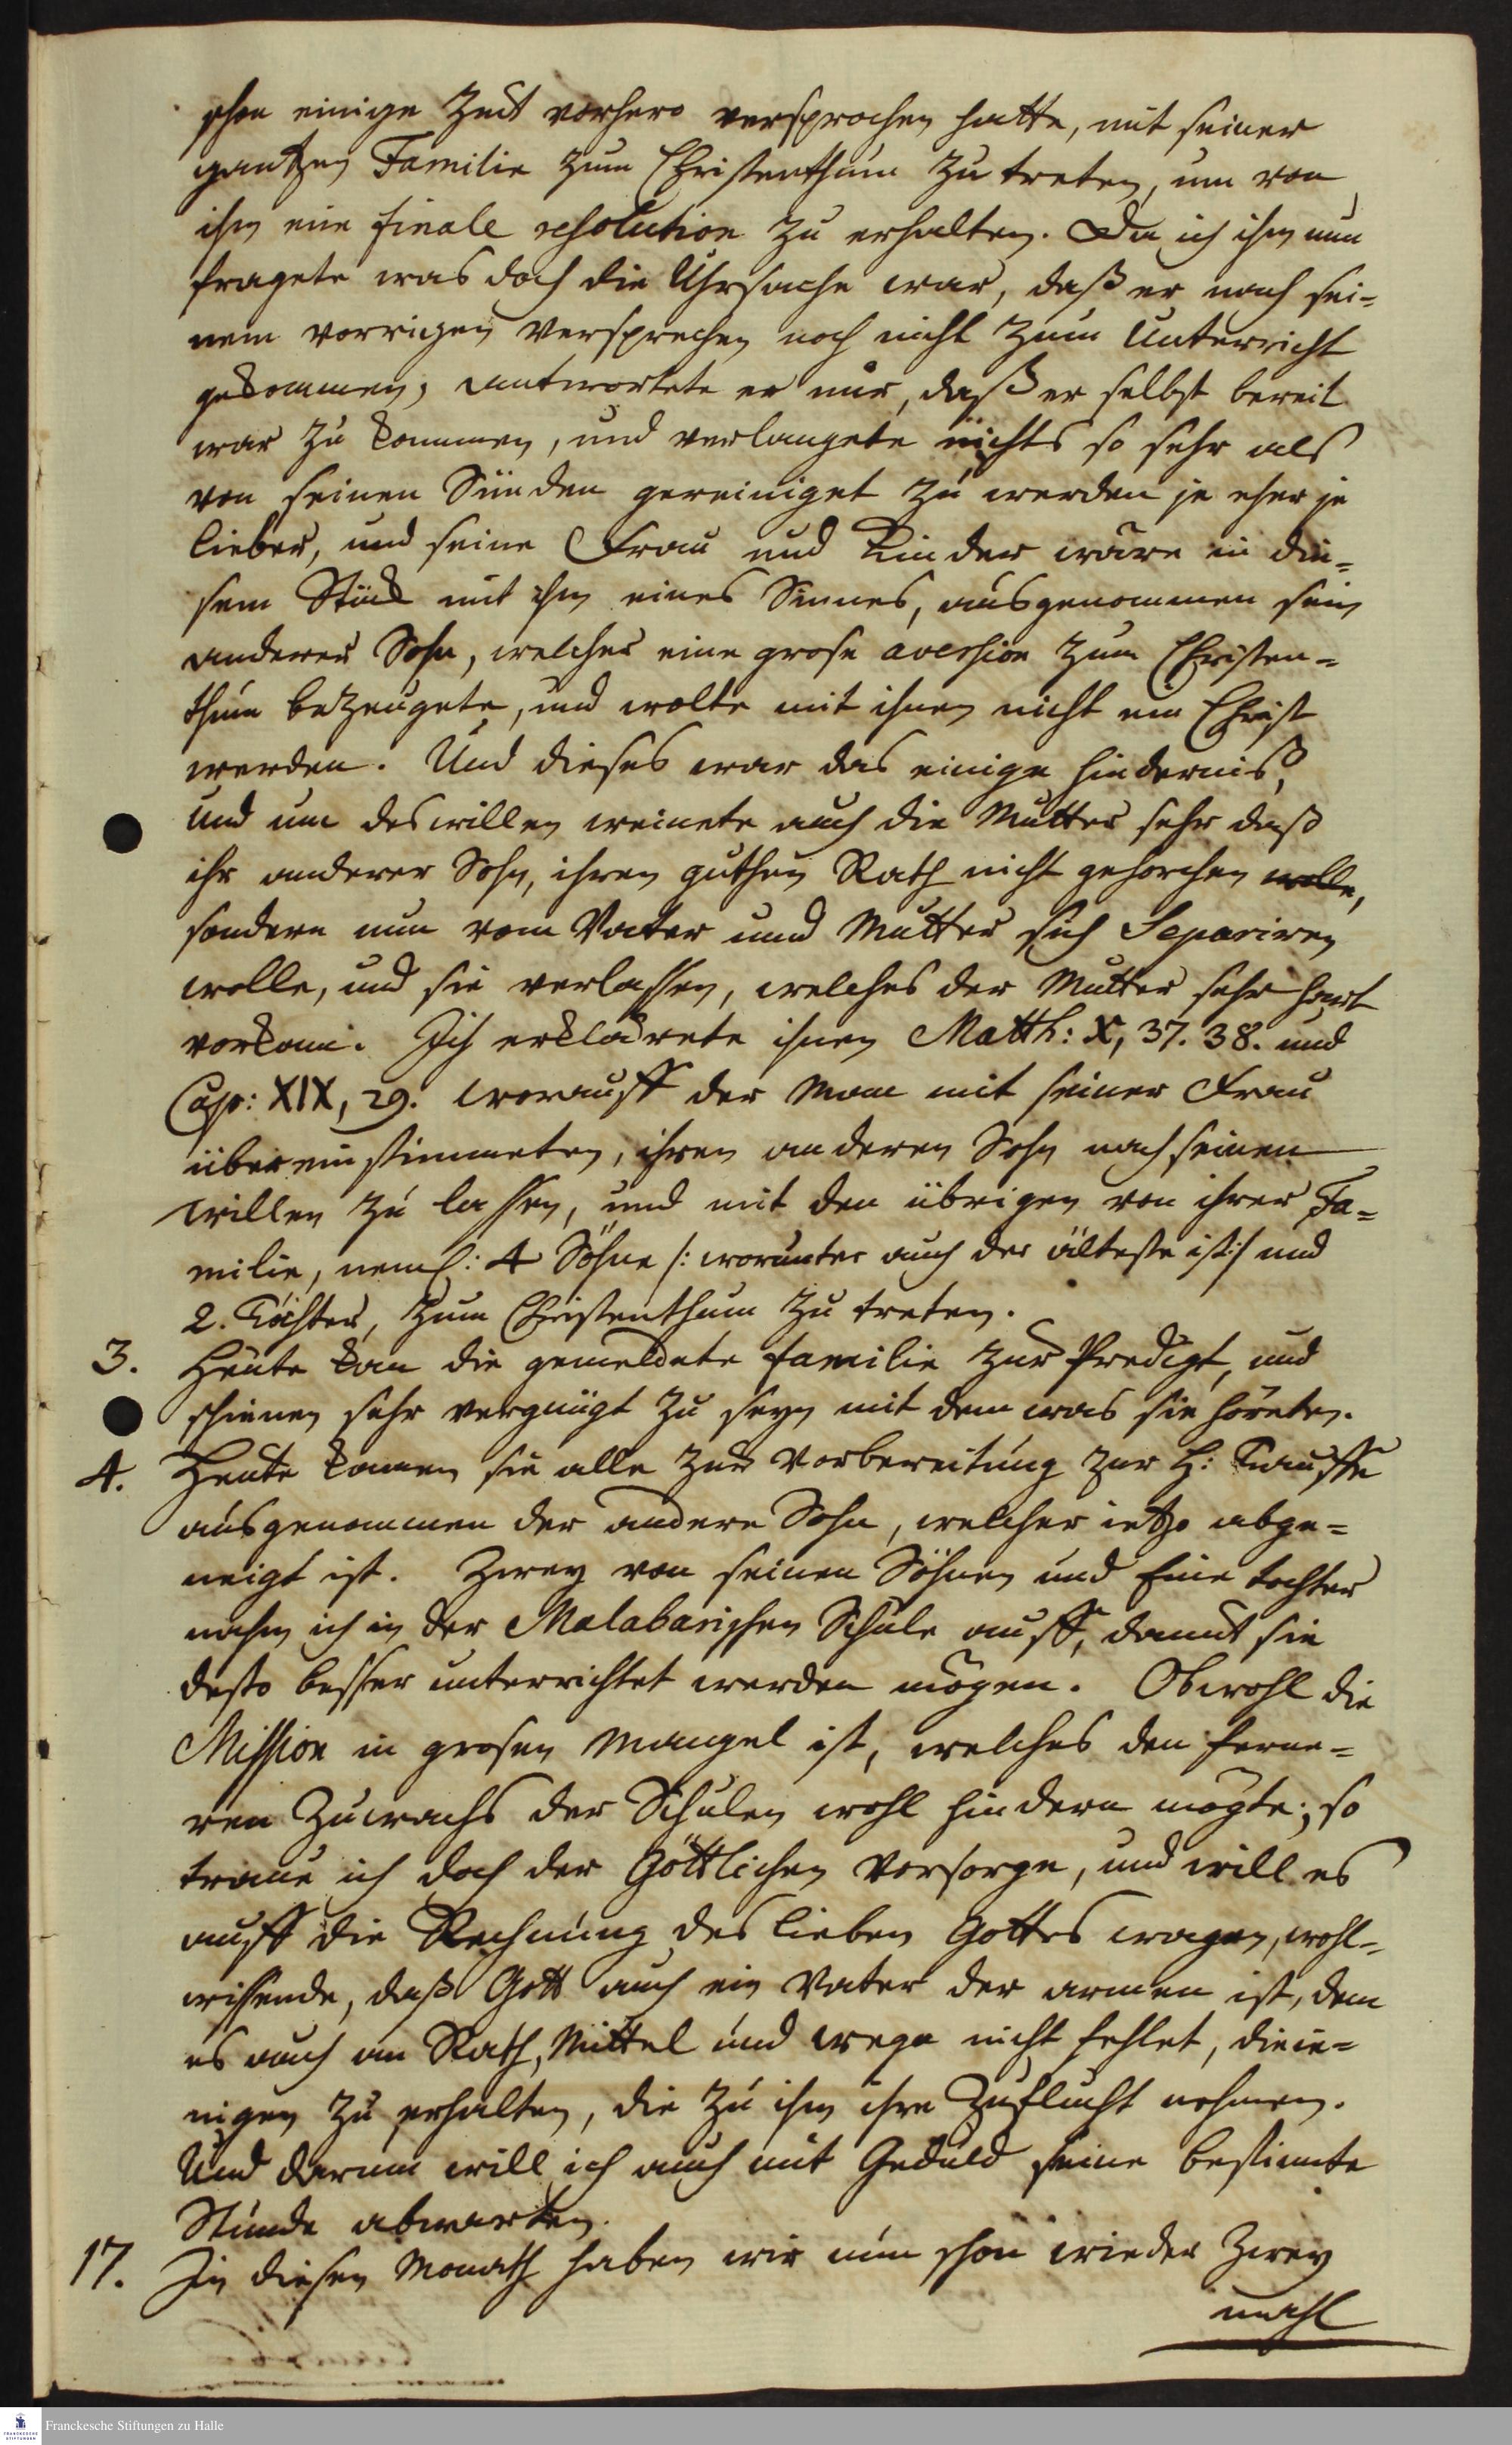 schon einige Zeit vorhero versprochen hatte, mit seiner
gantzen Familie zum Christenthum zu treten, um von
ihm eine finale resolution zu erhalten. Da ich ihn nun
fragete was doch die Uhrsache war, daß er nach sei-
nem vorrigen Versprechen noch nicht zum Unterricht
gekommen, antwortete er mir, daß er selbst bereit
war zu kommen, und verlangete nichts so sehr als
von seinen Sünden gereiniget zu werden je eher je
lieber, und seine Frau und Kinder wäre in die-
sem Stück mit ihm eines Sinnes, ausgenommen sein
anderer Sohn, welcher eine grose aversion zum Christen-
thum bezeugete, und wolte mit ihnen nicht ein Christ
werden. Und dieses war das einige hindernis,
und um deswillen weinete auch die Mutter sehr daß
ihr anderer Sohn, ihren guthen Rath nicht gehorchen wolle,
sondern nun vom Vater und Mutter sich Separiren
wolle, und sie verlassen, welches der Mutter sehr hart
vorkam. Ich erklärete ihnen Matth: X, 37. 38. und
Cap: XIX, 29. worauff der Man mit seiner Frau
übereinstimmeten, ihren anderen Sohn nach seinen
willen zu lassen, und mit den übrigen von ihrer Fa-
milie, neml: 4 Söhne /: worunter auch der älteste ist :/ und
2. Töchter, zum Christenthum zu treten.
3. Heute kam die gemeldete familie zur Predigt, und
schienen sehr vergnügt zu seyn mit dem was sie höreten.
4. Heute kamen sie alle zur Vorbereitung zur H: Tauffe
ausgenommen der andere Sohn, welcher ietzo abge-
neigt ist. Zwey von seinen Söhnen und Eine tochter
nahm ich in der Malabarischen Schule auff, damit sie
desto besser unterrichtet werden mögen. Obwohl die
Mission in grosen Mangel ist, welches den ferne-
ren Zuwachs der Schulen wohl hindern mögte; so
traue ich doch der Göttlichen Vorsorge, und will es
auff die Rechnung des lieben Gottes wagen, wohl-
wissende, daß Gott auch ein Vater der armen ist, dem
es auch an Rath, Mittel und wege nicht fehlet, dieie-
nigen zu erhalten, die zu ihm ihre Zuflucht nehmen.
Und darum will ich auch mit Geduld seine bestimte
Stunde abwarten.
17. In diesen Monath haben wir nun schon wieder zwey
mahl
Franckesche Stiftungen zu Halle